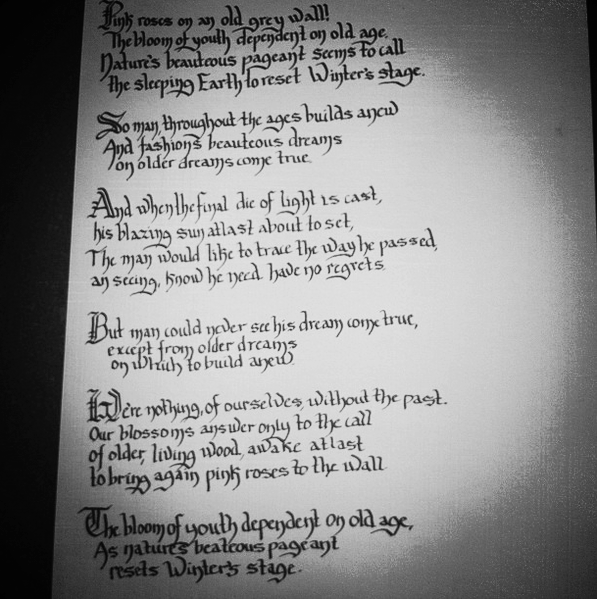 Pink roses on an old grey wall!
The bloom of youth dependent on old age.
Nature's beauteous pageant seems to call
the sleeping Earth to reset Winter's stage.
So man, throughout the ages builds anew
And fashions beauteous dreams
on older dreams come true.
And when the final die of light is cast,
his blazing sun at last about to set,
The man would like to trace the way he passed,
an seeing, know he need have no regrets.
But man could never see his dream come true,
except from older dreams
on which to build anew.
We're nothing, of ourselves, without the past.
Our blossoms answer only to the call
of older, living wood, awake at last
to bring again pink roses to the wall
The bloom of youth dependent on old age,
As nature's beateous pageant
resets Winter's stage.